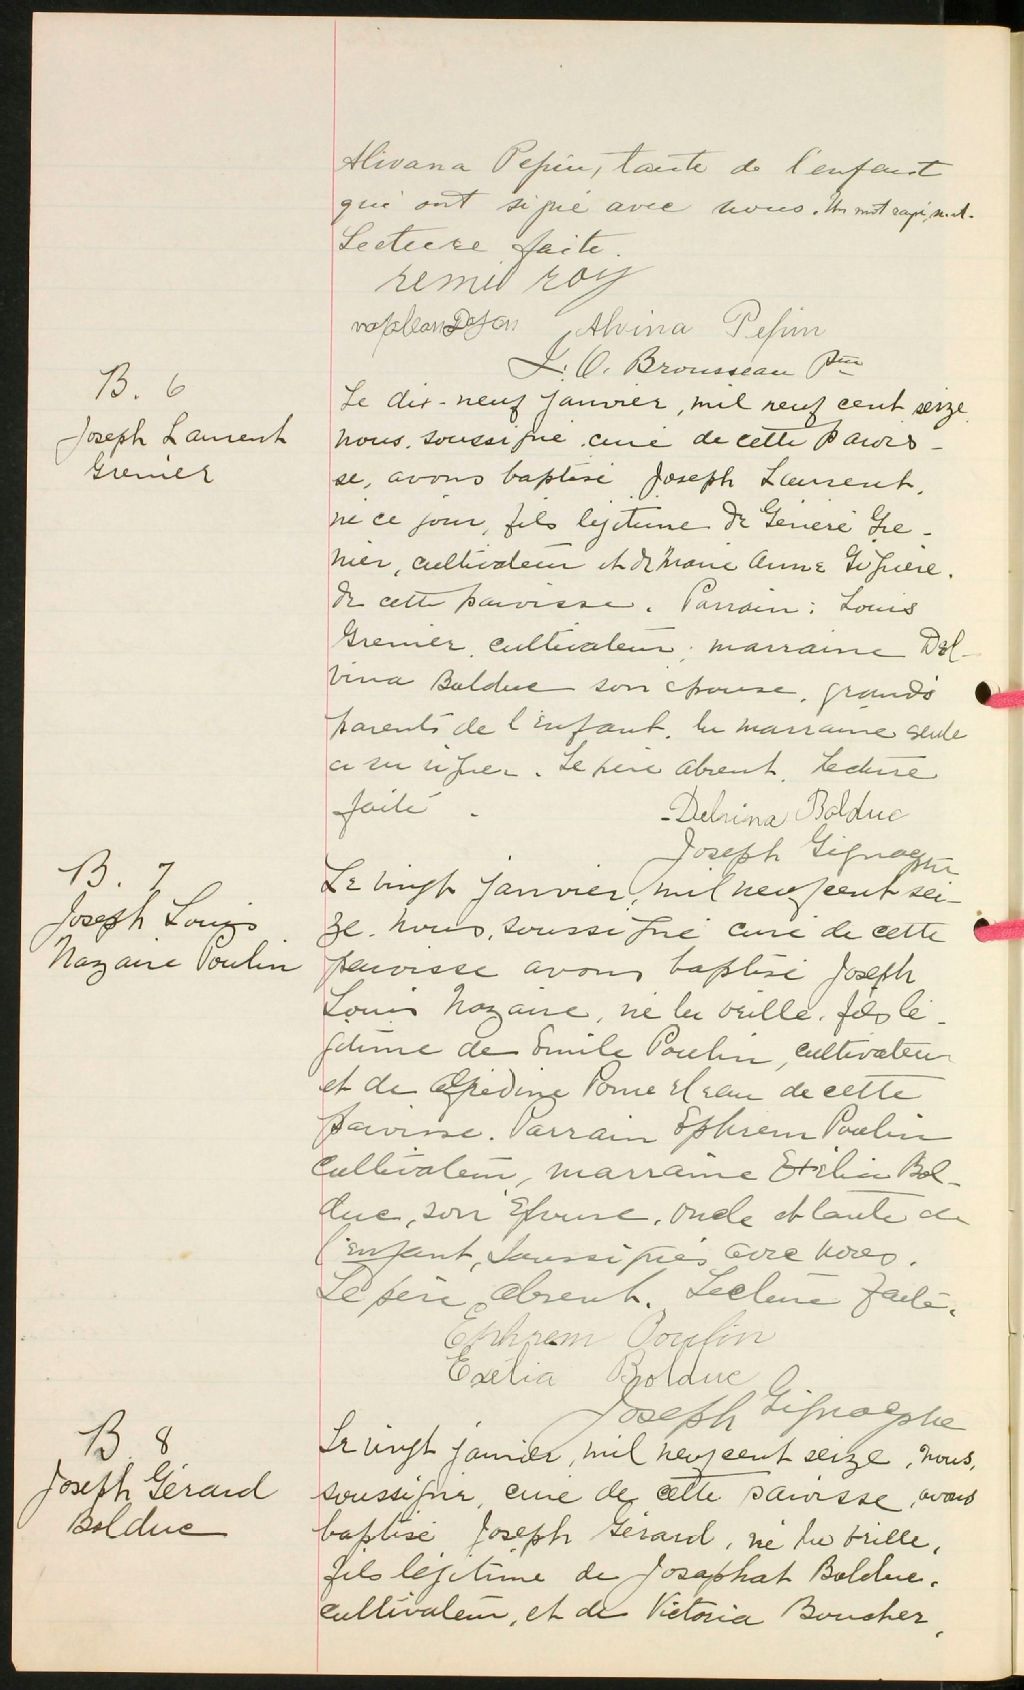 Alivana Pepin, tante de l'enfant
qui ont signé avec nous. Un mot rayé, nul.
Lecture faite.
remi roy
Alvina Pepin
J. O. Brousseau Ptre
B. 6
Joseph Laurent
Grenier
Le dix-neuf janvier, mil neuf cent seize
nous, soussigné, curé de cette parois-
se, avons baptisé Joseph Laurent,
né ce jour, fils légitime de Généré Gre-
nier, cultivateur et de Marie Anne Giguère,
de cette paroisse. Parrain: Louis
Grenier, cultivateur; marraine Del-
vina Bolduc son épouse, grands
parents de l'enfant. la marraine seule
a su signer. Le père absent. Lecture
faite.
Delvina Bolduc
Joseph Gignac ptre
B. 7
Joseph Louis
Nazaire Poulin
Le vingt janvier, mil neuf cent sei-
ze. nous, soussigné curé de cette
paroisse avons baptisé Joseph
Louis Nazaire, né la veille, fils lé-
gitime de Emile Poulin, cultivateur
et de Pomerleau de cette
paroisse. Parrain Ephrem Poulin
cultivateur, marraine Exélia Bol-
duc, son épouse, oncle et tante de
l'enfant, soussignés avec nous.
Le père absent. Lecture faite.
Ephrem Poulin
Exélia Bolduc
Joseph Gignac ptre
B. 8
Joseph Gérard
Bolduc
Le vingt janvier, mil neuf cent seize, nous,
soussigné, curé de cette paroisse, avons
baptisé Joseph Gérard, né la veille,
fils légitime de Josaphat Bolduc,
cultivateur, et de Victoria Boucher,